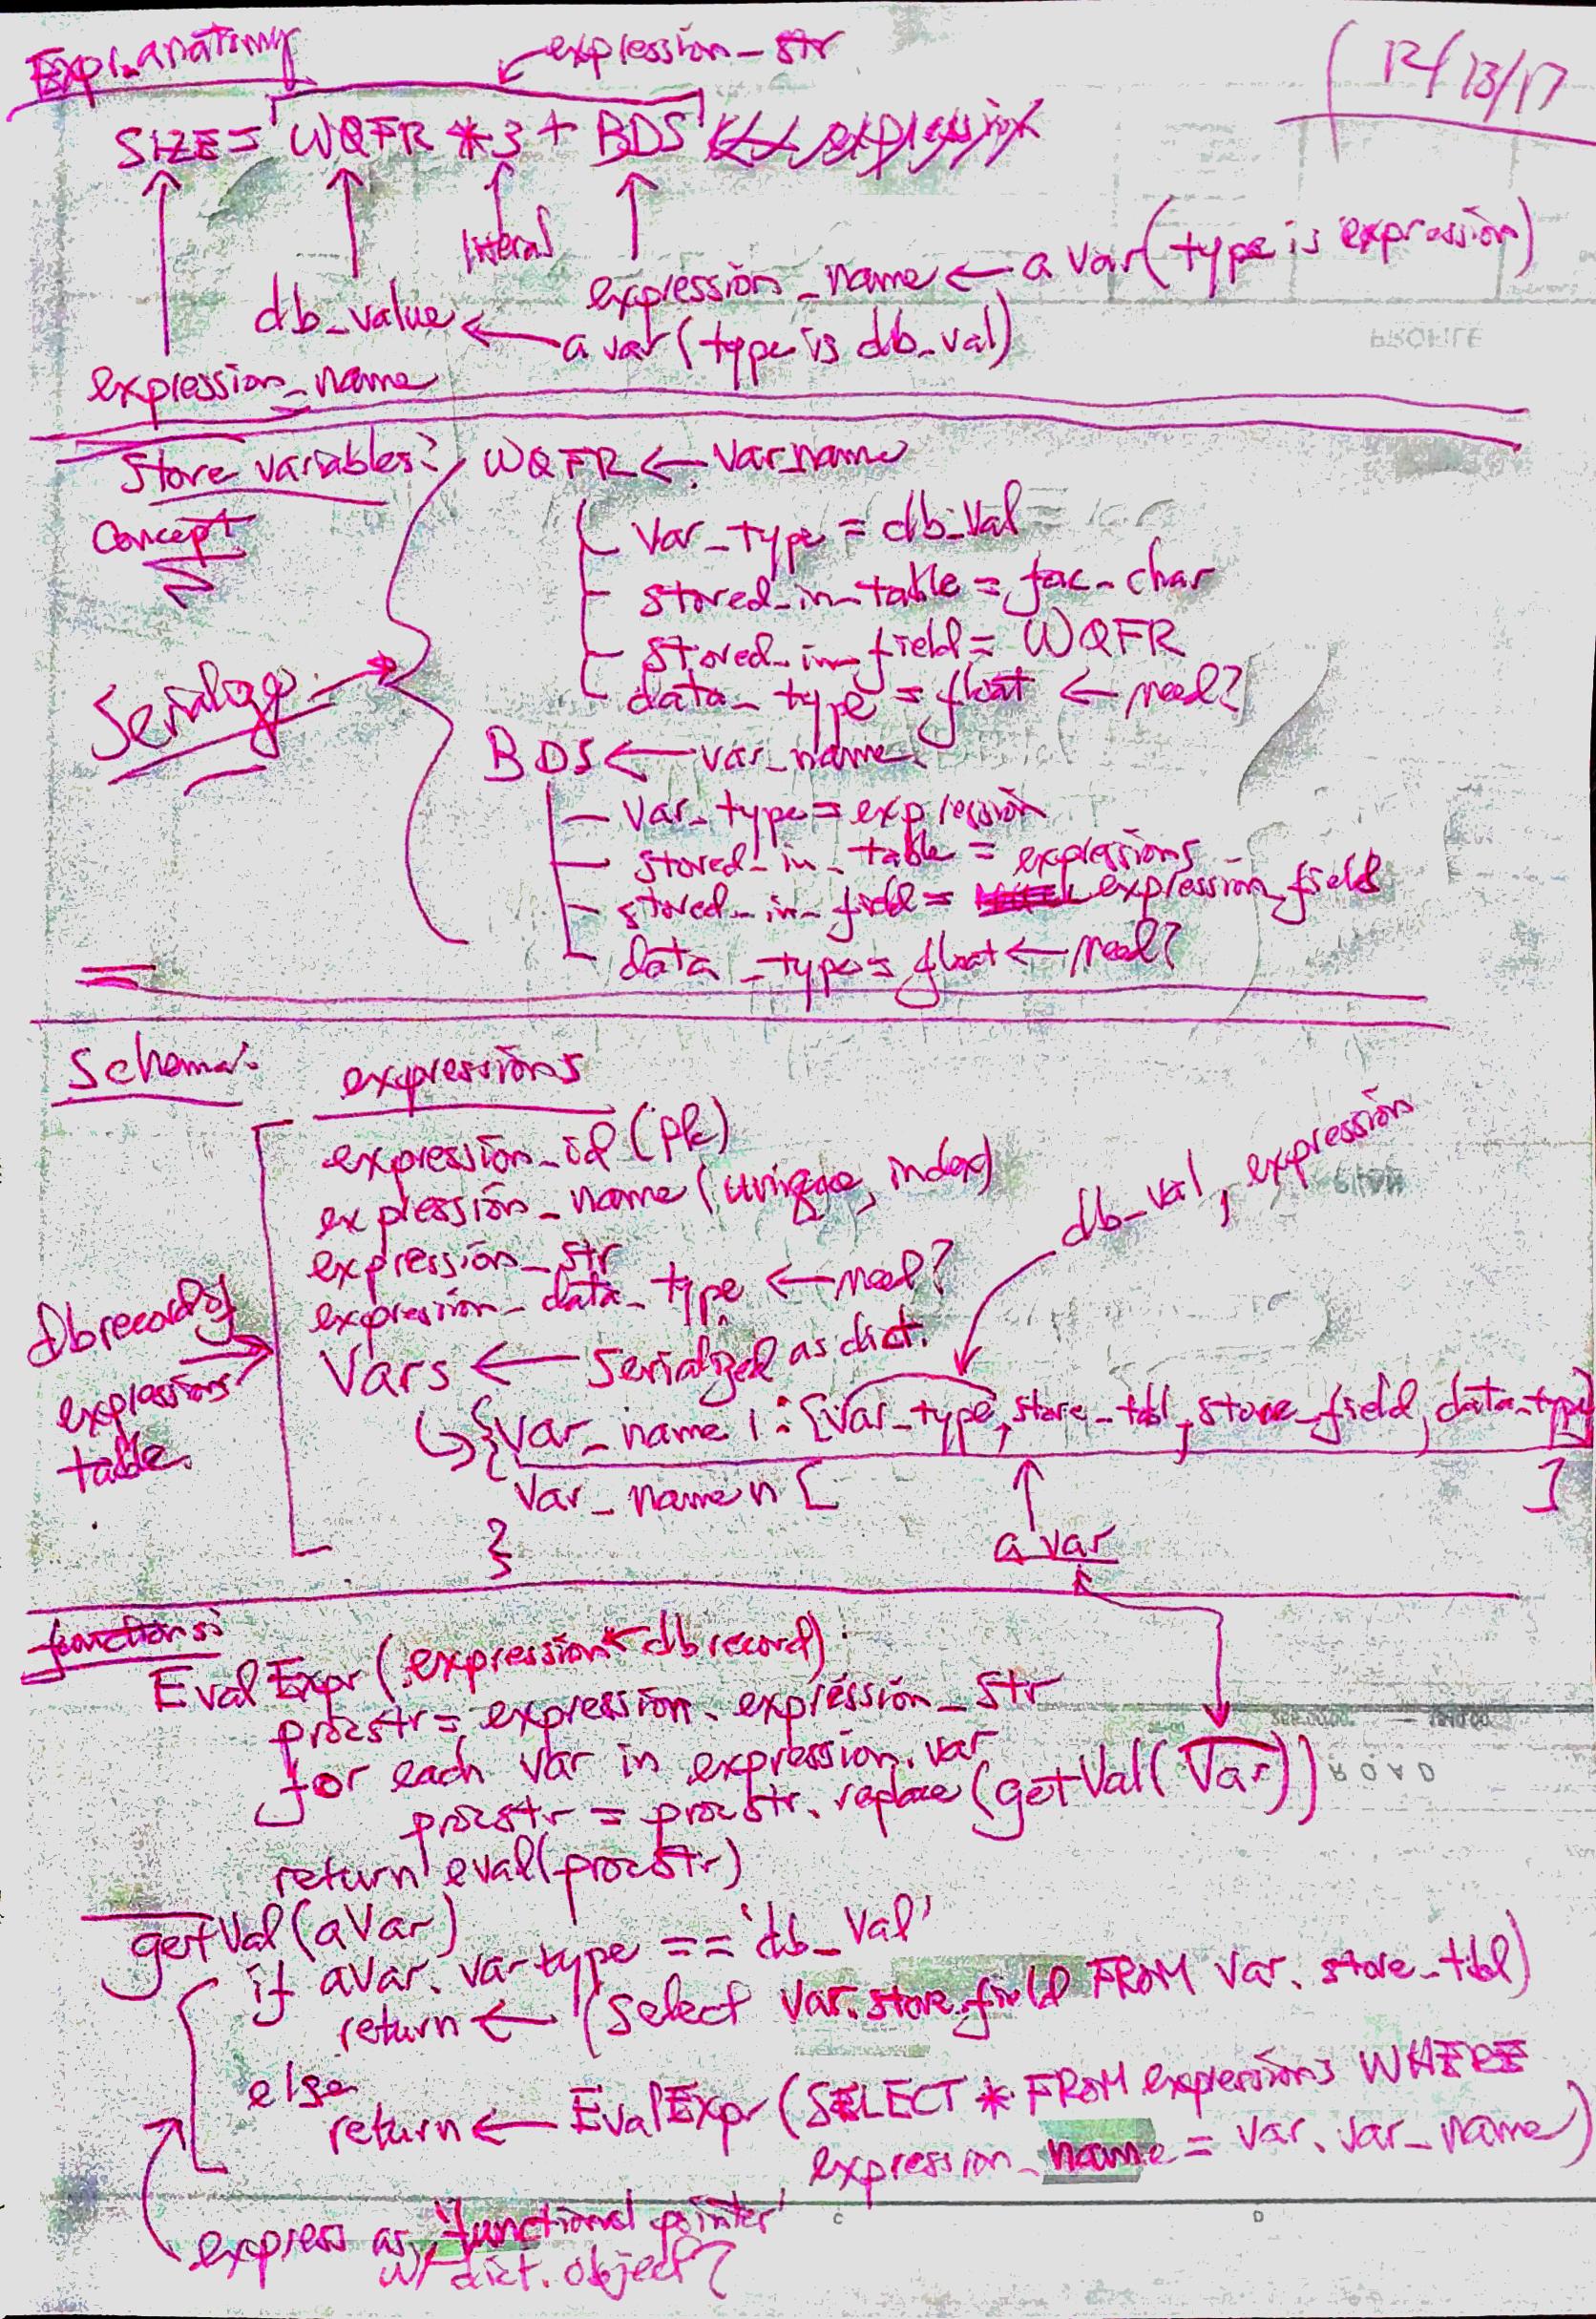 expression_str
12/13/17
SIZE = 'WQFR * 3 + BDS' << expression
literal
expression_name ← a var (type is expression)
db_value ← a var (type is db_val)
expression_name
Store variables: WQFR ← var_name
Concept
var_type = db_val
stored_in_table = fac_char
stored_in_field = WQFR
data_type = float ← need?
BDS ← var_name
var_type = expression
stored_in_table = expressions
stored_in_field = expression_field
data_type = float ← need?
Schema: expressions
expression_id (pk)
expression_name (unique, index)
db_val, expression
expression_str
expression_data_type ← need?
db record of
expressions
table.
Vars ← Serialized as dict.
{var_name 1: [var_type, store_tbl, store_field, data_type]
var_name n [ ]
}
a var
functions:
EvalExpr (expression ← db record):
procstr = expression.expression_str
for each var in expression.var
procstr = procstr.replace (getVal(Var))
ROAD
return eval(procstr)
getVal(aVar)
if aVar.vartype == 'db_val'
return ← (Select var.store_field FROM var.store_tbl)
else
return ← EvalExpr (SELECT * FROM expressions WHERE
expression_name = var.var_name)
express as 'functional pointer'
w/ dict. object?
C
D